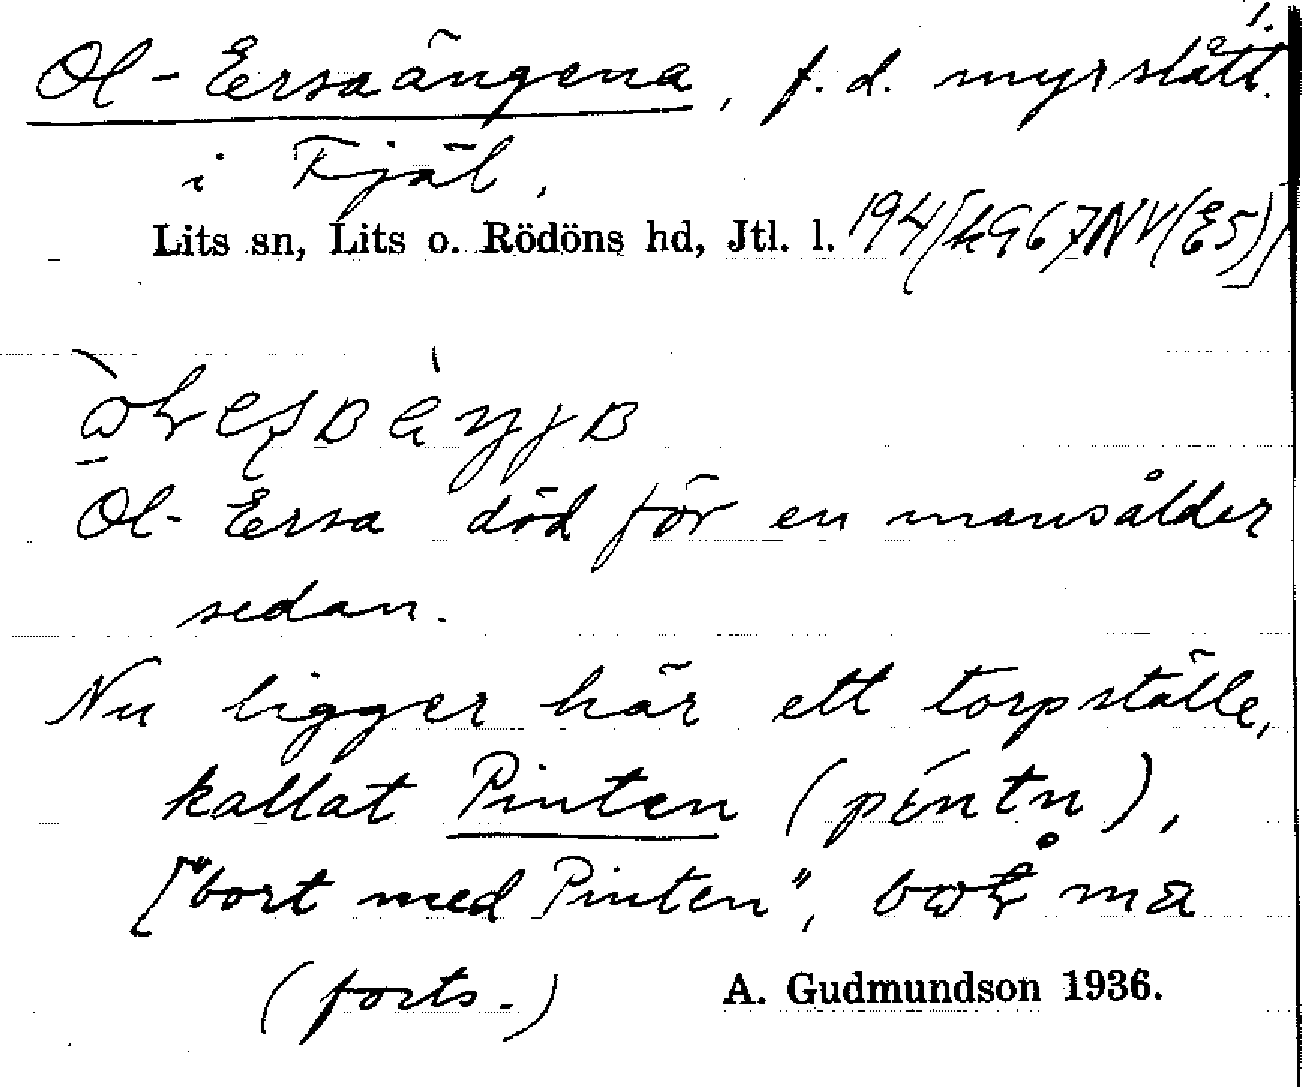 1.
Ol-Ersaängena, f.d. myrslått.
i Fjäl,
Lits sn, Lits o. Rödöns hd, Jtl. l. 194[kG67NV(E5)]
Ol-Ersa död för en mansålder
sedan.
Nu ligger här ett torpställe,
kallat Pinten (píntn),
["bort med Pinten", ma
(forts.) A. Gudmundson 1936.